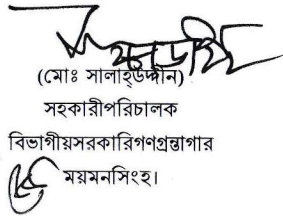 (মোঃ সালাহ্উদ্দীন)
সহকারীপরিচালক
বিভাগীয়সরকারিগণগ্রন্তাগার
ময়মনসিংহ।